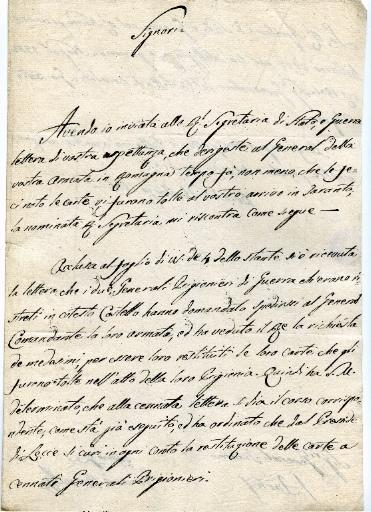 Signori
Avendo io inviata alla R.l Segretaria di Stato, e Guerra
lettera di vostra spettanza, che dirigeste al General della
vostra Armata in Romagna tempo fà, non meno, che le fe-
ci note le carte vi furono tolte al vostro arrivo in Taranto,
la nominata R.l Segretaria mi riscontra come segue —
Acclusa al foglio di de' 4 dello stante si è ricevuta
la lettera che i due Generali Prigionieri di Guerra ch'erano
in cotesto Castello hanno domandato spedirsi al General
Comandante la loro armata, ed ha veduta il Re la richiesta
de' medesimi, per essere loro restituite le loro carte che gli
furono tolte nell'atto della loro Prigionia. Quindi ha S. M.
determinato, che alla cennata lettera si dia il corso corrispo-
ndente, come stà già eseguito, ed ha ordinato che dal Preside
di Lecce si curi in ogni conto la restituzione delle carte a
cennati Generali Prigionieri.